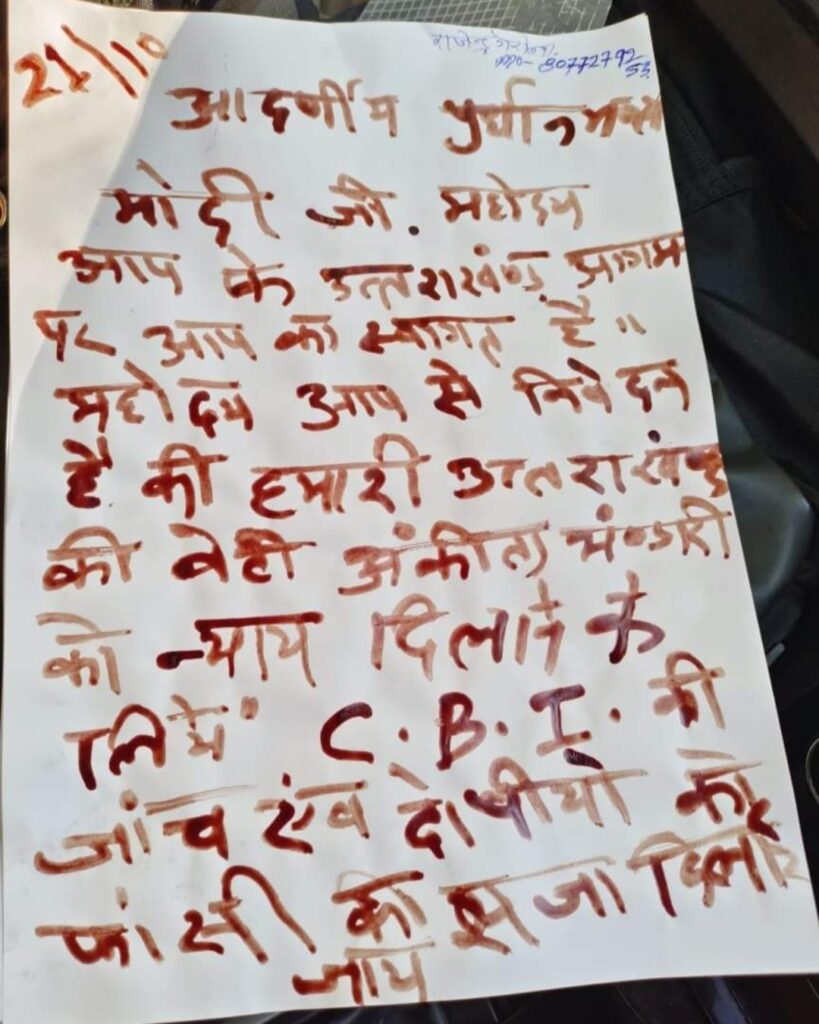 21/10
राजेन्द्र
मो०- 8077279253
आदर्णीय प्रर्धानमंत्री
मोदी जी. महोदय
आप के उत्तराखंण्ड आगमन
पर आप का स्वागत है॥
महोदय आप से निवेदन
है की हमारी उत्तराखंण्ड
की बेटी अंकीता भंण्डारी
को न्याय दिलाने के
लिये C.B.I. की
जांच एंव दोषीयो को
फांसी की सजा दिलाई
जाय